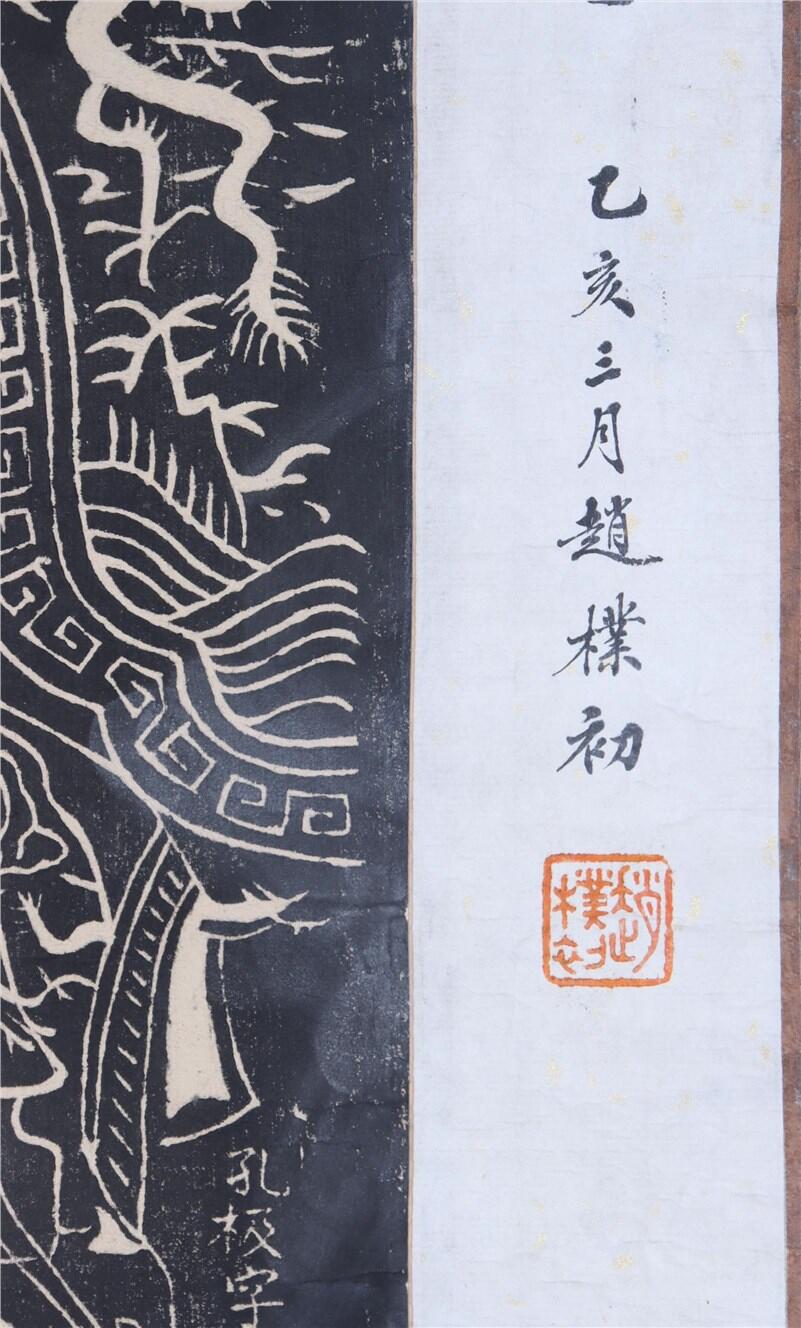 乙亥三月趙樸初
趙樸初
孔极字